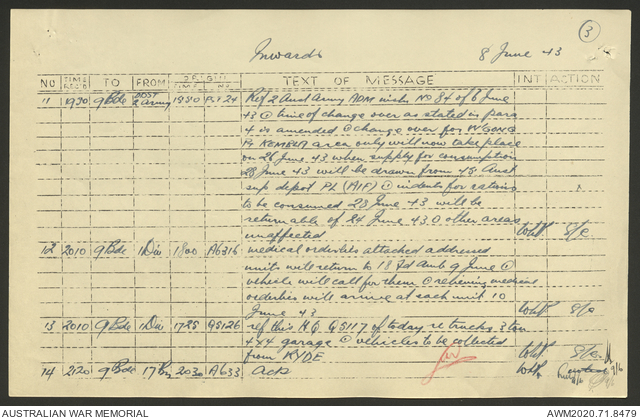 3
Inwards 8 June 43
NO TIME REC'D TO FROM ORIGIN TIME NO. TEXT OF MESSAGE INT ACTION
11 1930 9 Bde 2 Army 1850 24 Ref 2 Aust Army ADM instn No 84 of 6 June
43 @ time of change over as stated in para
4 is amended @ change over for W'GONG
Pt KEMBLA area only will now take place
on 26 June 43 when supply for consumption
28 June 43 will be drawn from 48 Aust
sup depot PL (AIF) @ indents for rations
to be consumed 28 June 43 will be
returnable of 24 June 43 @ other areas
unaffected
12 2010 9 Bde 1 Div 1800 A6316 medical orderlies attached addressed
units will return to 18 Fd Amb 9 June @
vehicle will call for them @ relieving medical
orderlies will arrive at each unit 10
June 43
13 2010 9 Bde 1 Div 1725 GS126 ref this HQ GS117 of today re trucks 3 ton
4x4 garage @ vehicles to be collected
from RYDE
14 2120 9 Bde 17 2030 A633 Ack
AUSTRALIAN WAR MEMORIAL AWM2020.71.8479